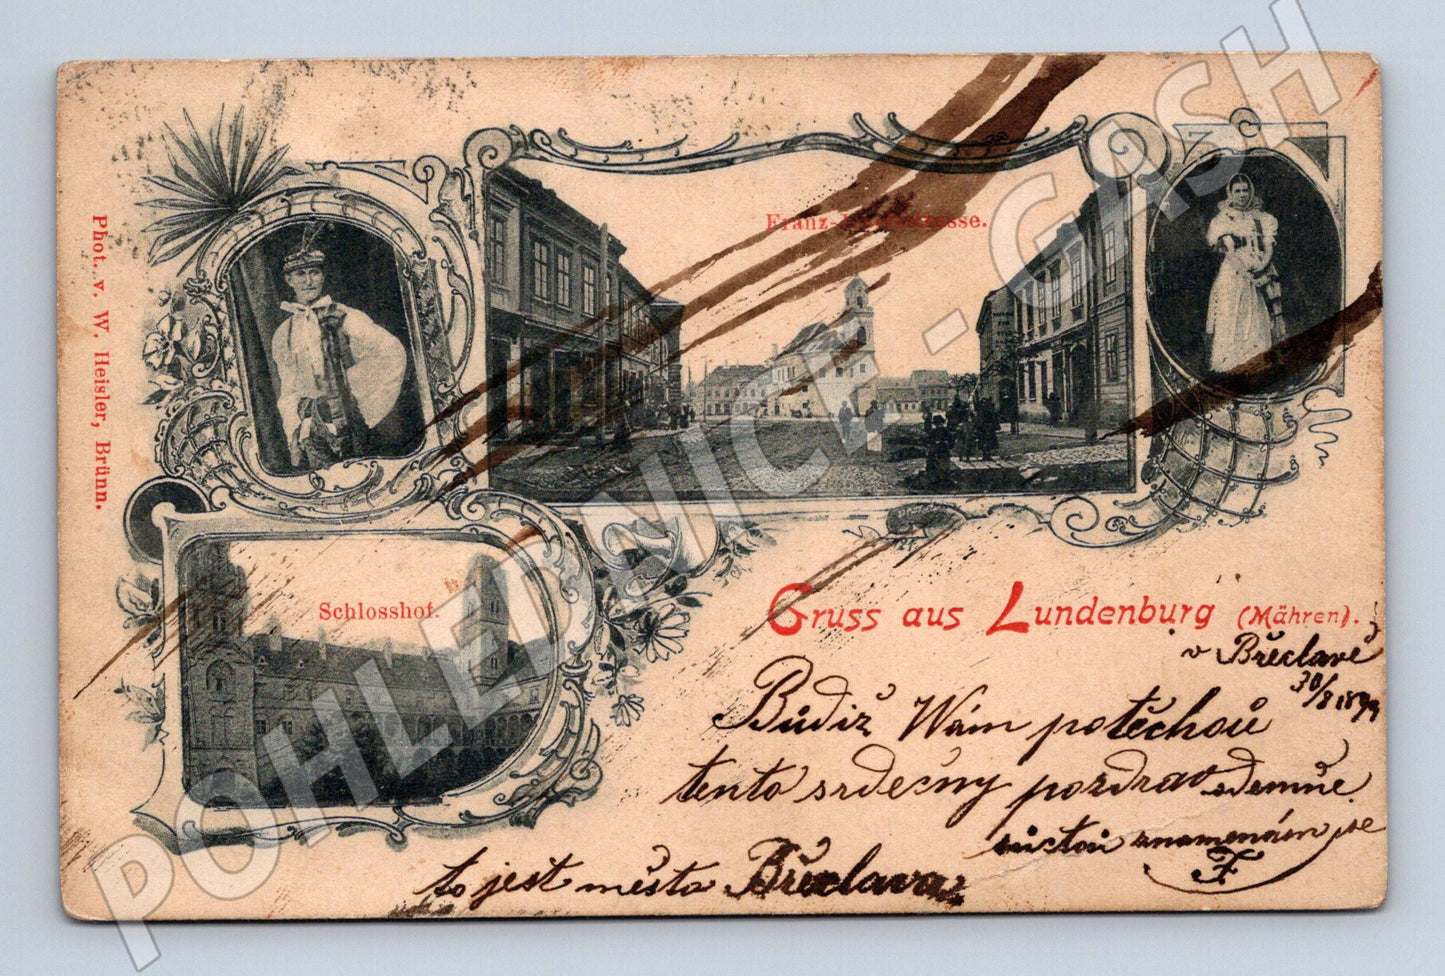 Phot. v. W. Heisler, Brünn.
Franz-Josefstrasse.
Schlosshof.
Gruss aus Lundenburg (Mähren).
v Břeclavě
30/8 1899
Búdiž Wám potěchoú
tento srdečný pozdrav odemňe
súctoú znamenám jse
F
to jest města Břeclava
POHLEDNICE - GASH